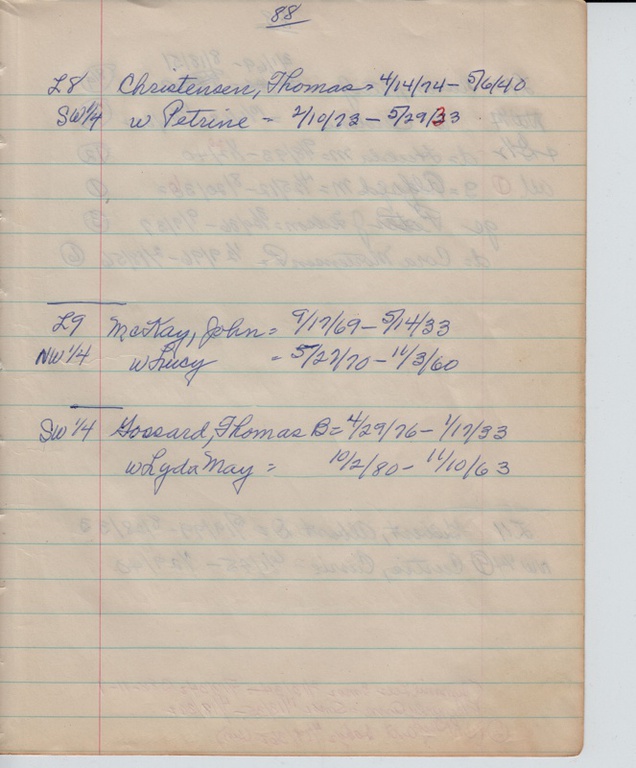 88
L8 Christensen, Thomas = 4/14/74 - 5/6/40
SW 1/4 w Petrine = 2/10/73 - 5/29/33
L9 McKay, John = 9/17/69 - 5/14/33
NW 1/4 w Lucy = 5/27/70 - 11/3/60
SW 1/4 Gossard, Thomas B = 4/29/76 - 1/17/33
w Lyda May = 10/2/80 - 11/10/63